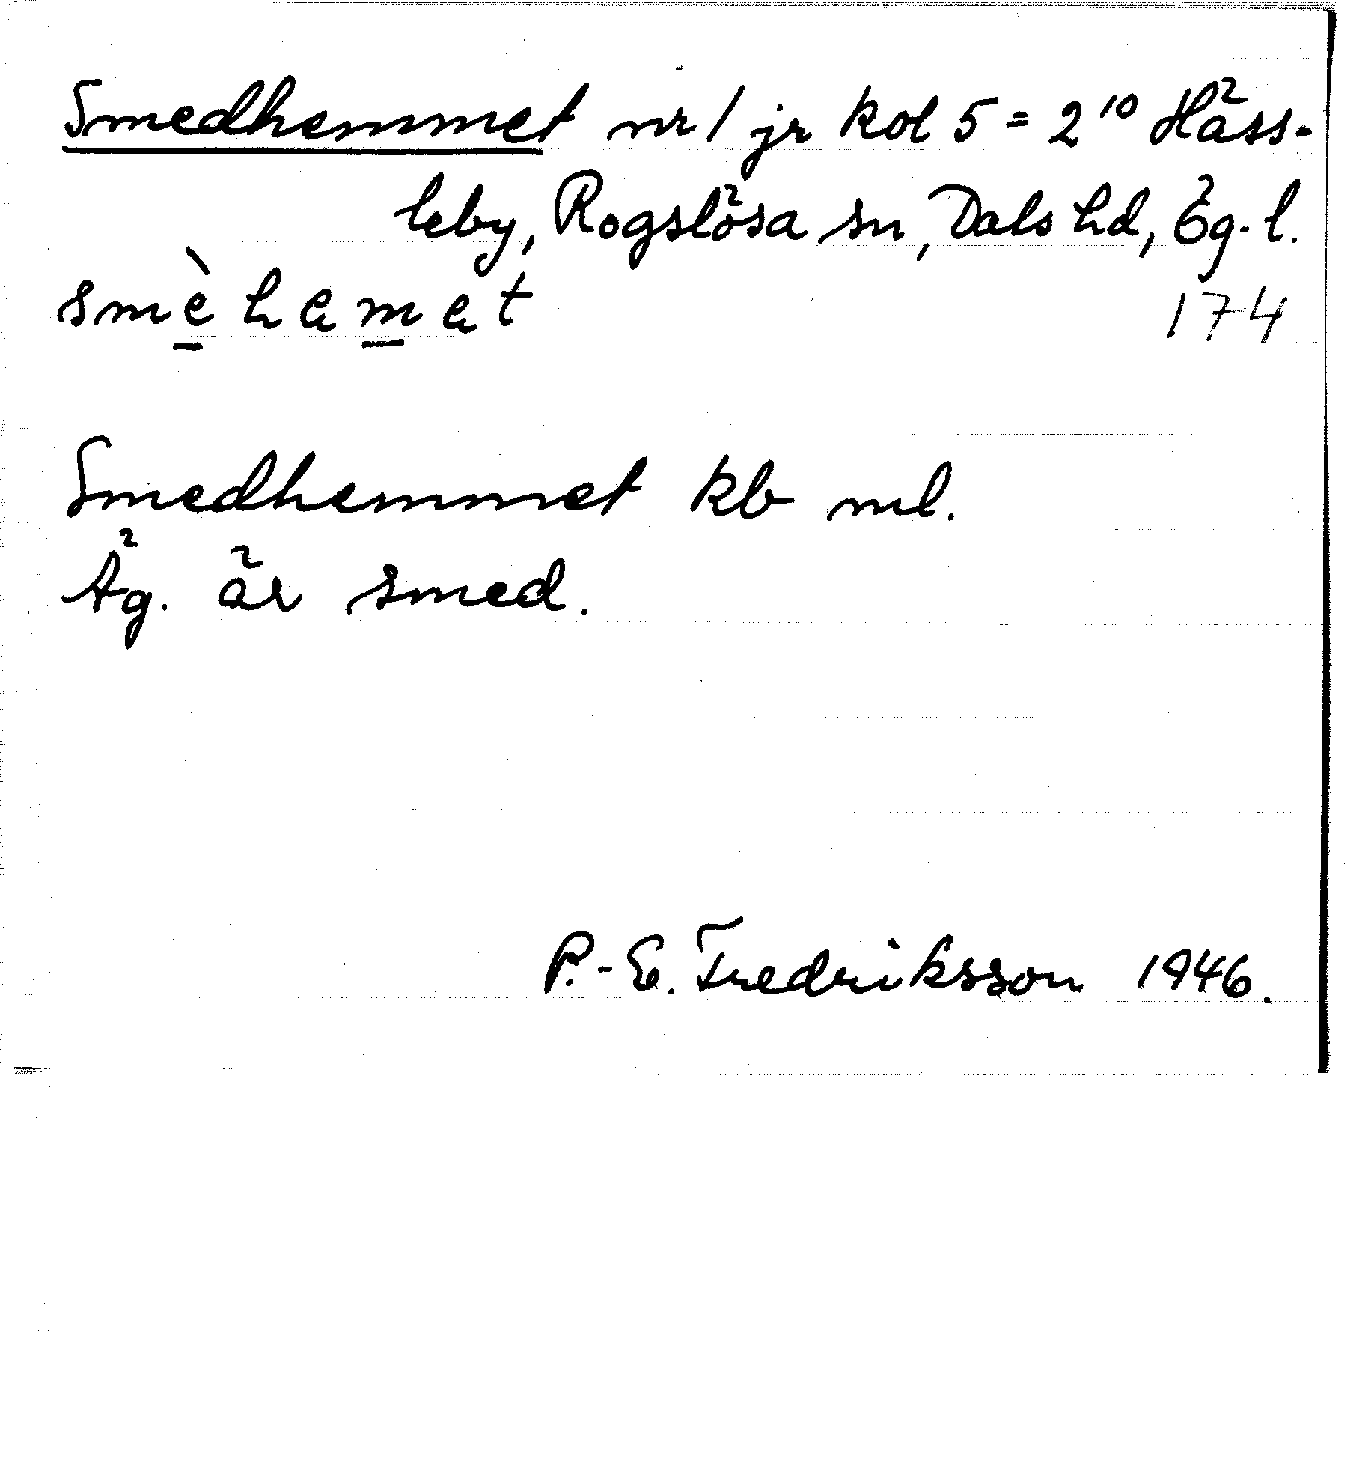 Smedhemmet nr 1 jr kol 5 = 2¹⁰ Häss-
leby, Rogslösa sn, Dals hd, Ög. l.
smèhemet 174
Smedhemmet kb ml.
Äg. är smed.
P.-E. Fredriksson 1946.